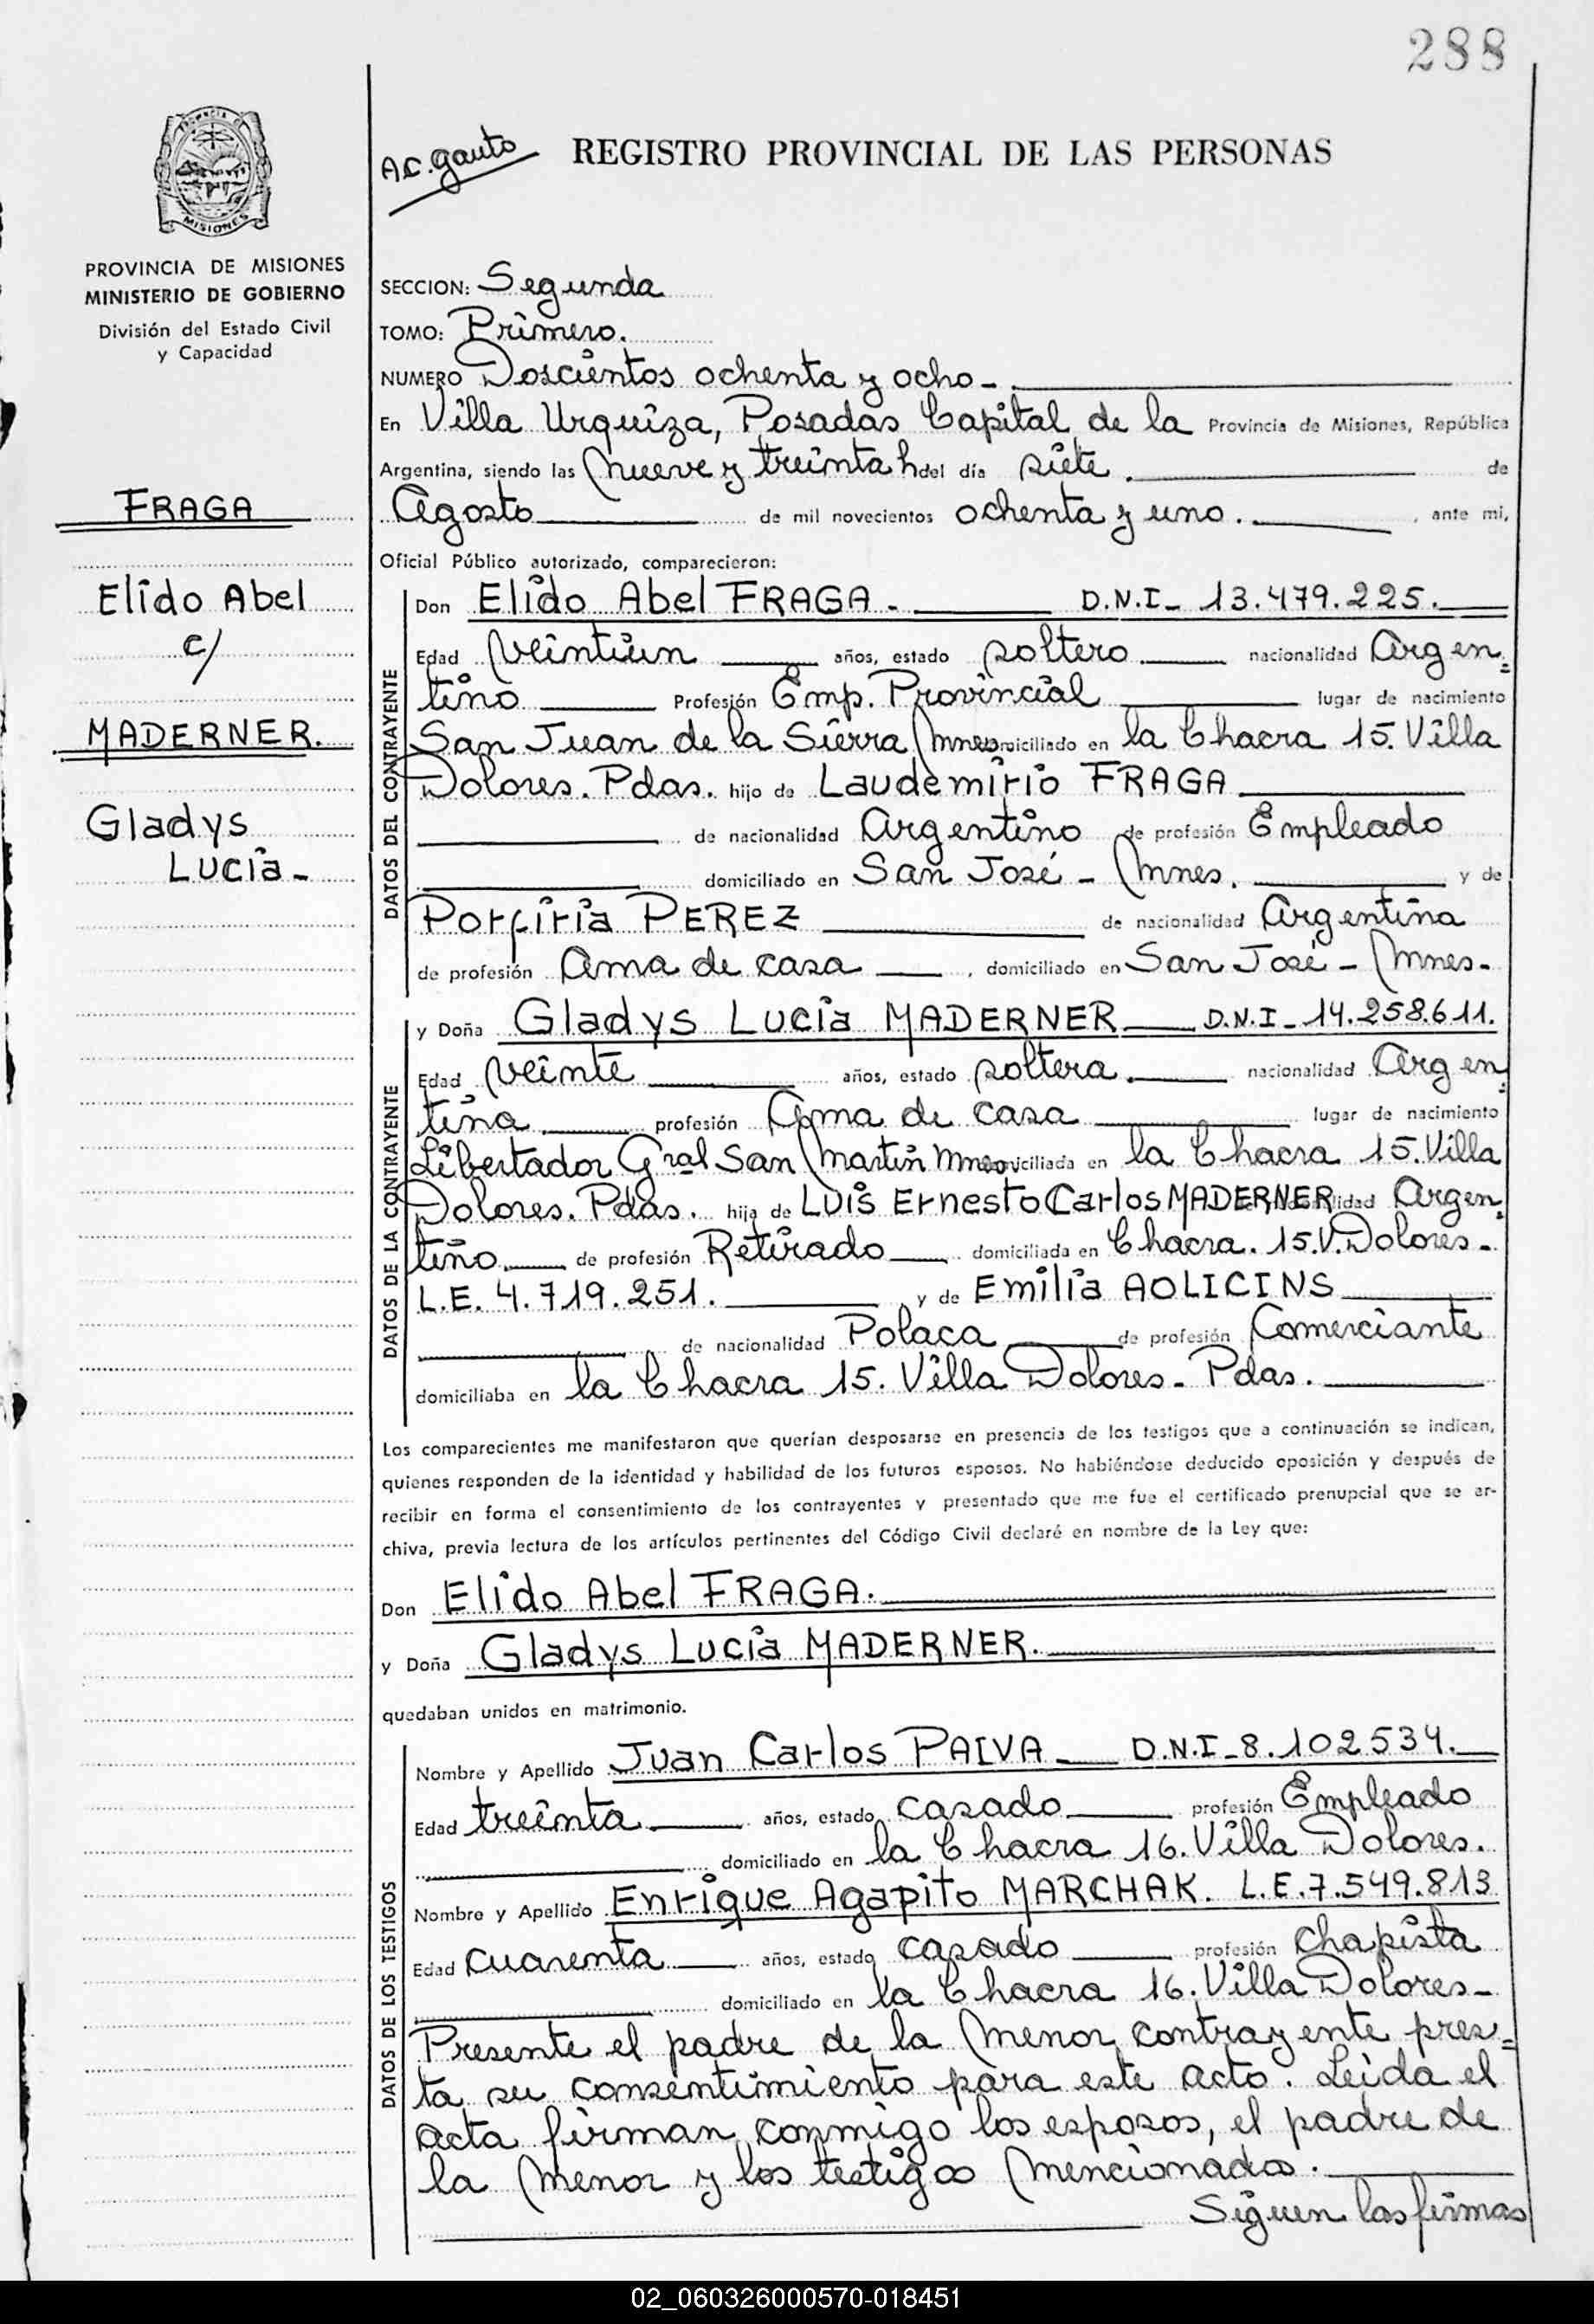 288
A.C. Gauto
REGISTRO PROVINCIAL DE LAS PERSONAS
MISIONES
PROVINCIA DE MISIONES
MINISTERIO DE GOBIERNO
División del Estado Civil
y Capacidad
FRAGA
Elido Abel
c/
MADERNER.
Gladys
Lucía-
SECCION: Segunda
TOMO: Primero.
NUMERO Doscientos ochenta y ocho-
En Villa Urquiza, Posadas Capital de la Provincia de Misiones, República
Argentina, siendo las nueve y treinta h del día siete. de
Agosto de mil novecientos ochenta y uno. , ante mi,
Oficial Público autorizado, comparecieron:
DATOS DEL CONTRAYENTE
Don Elido Abel FRAGA - D.N.I- 13.479.225.
Edad veintiun años, estado soltero nacionalidad Argen=
tino Profesión Emp. Provincial lugar de nacimiento
San Juan de la Sierra Mnes domiciliado en la Chacra 15. Villa
Dolores. Pdas. hijo de Laudemirio FRAGA
de nacionalidad Argentino de profesión Empleado
domiciliado en San José - Mnes. y de
Porfiria PEREZ de nacionalidad Argentina
de profesión Ama de casa , domiciliado en San José - Mnes-
DATOS DE LA CONTRAYENTE
y Doña Gladys Lucía MADERNER D.N.I- 14.258.611.
Edad veinte años, estado soltera. nacionalidad Argen=
tina profesión Ama de casa lugar de nacimiento
Libertador Gral San Martín Mnes domiciliada en la Chacra 15. Villa
Dolores. Pdas. hija de Luis Ernesto Carlos MADERNER nacionalidad Argen=
tino. de profesión Retirado domiciliada en Chacra. 15. V. Dolores-
L.E. 4.719.251. y de Emilia AOLICINS
de nacionalidad Polaca de profesión Comerciante
domiciliaba en la Chacra 15. Villa Dolores- Pdas.
Los comparecientes me manifestaron que querían desposarse en presencia de los testigos que a continuación se indican,
quienes responden de la identidad y habilidad de los futuros esposos. No habiéndose deducido oposición y después de
recibir en forma el consentimiento de los contrayentes y presentado que me fue el certificado prenupcial que se ar-
chiva, previa lectura de los artículos pertinentes del Código Civil declaré en nombre de la Ley que:
Don Elido Abel FRAGA.
y Doña Gladys Lucía MADERNER.
quedaban unidos en matrimonio.
DATOS DE LOS TESTIGOS
Nombre y Apellido Juan Carlos PAIVA D.N.I-8.102534.
Edad treinta años, estado casado profesión Empleado
domiciliado en la Chacra 16. Villa Dolores.
Nombre y Apellido Enrique Agapito MARCHAK. L.E.7.549.813
Edad cuarenta años, estado casado profesión chapista
domiciliado en la Chacra 16. Villa Dolores-
Presente el padre de la menor contrayente pres=
ta su consentimiento para este acto. Leida el
acta firman conmigo los esposos, el padre de
la menor y los testigos mencionados.
Siguen las firmas
02_060326000570-018451